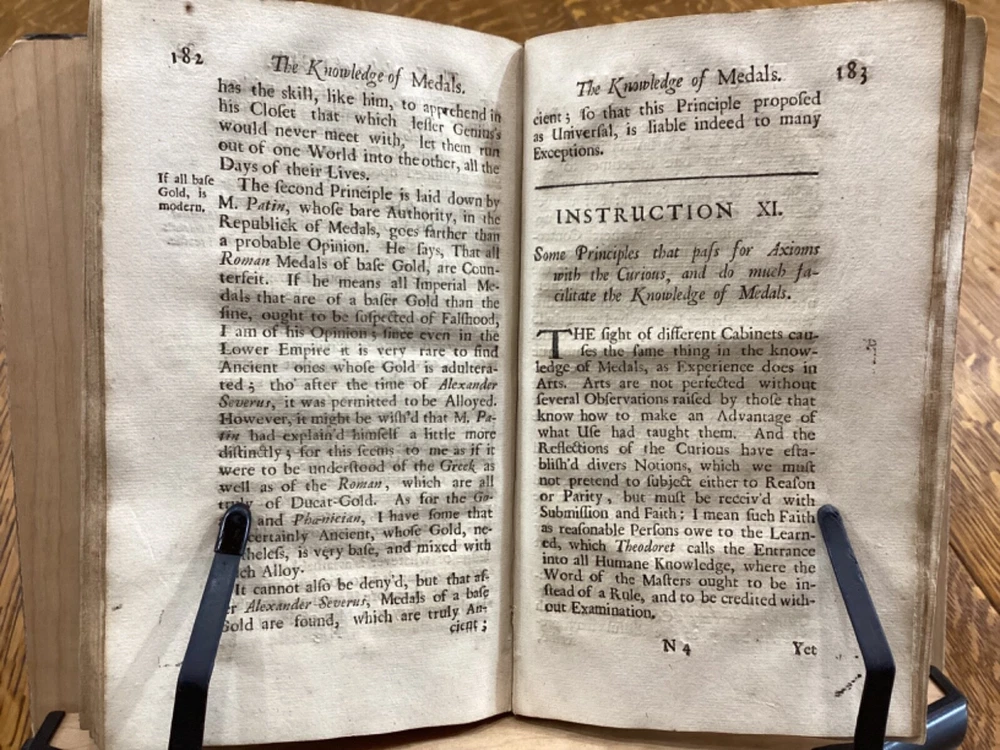 182
The Knowledge of Medals.
has the skill, like him, to apprehend in
his Closet that which lesser Genius's
would never meet with, let them run
out of one World into the other, all the
Days of their Lives.
If all base
Gold, is
modern.
The second Principle is laid down by
M. Patin, whose bare Authority, in the
Republick of Medals, goes farther than
a probable Opinion. He says, That all
Roman Medals of base Gold, are Coun-
terfeit. If he means all Imperial Me-
dals that are of a baser Gold than the
fine, ought to be suspected of Falshood,
I am of his Opinion; since even in the
Lower Empire it is very rare to find
Ancient ones whose Gold is adultera-
ted; tho' after the time of Alexander
Severus, it was permitted to be Alloyed.
However, it might be wish'd that M. Pa-
tin had explain'd himself a little more
distinctly; for this seems to me as if it
were to be understood of the Greek as
well as of the Roman, which are all
truly of Ducat-Gold. As for the Go-
and Phœnician, I have some that
certainly Ancient, whose Gold, ne-
theless, is very base, and mixed with
ch Alloy.
It cannot also be deny'd, but that af-
er Alexander Severus, Medals of a base
Gold are found, which are truly An-
cient;
183
The Knowledge of Medals.
cient; so that this Principle proposed
as Universal, is liable indeed to many
Exceptions.
INSTRUCTION XI.
Some Principles that pass for Axioms
with the Curious, and do much fa-
cilitate the Knowledge of Medals.
THE sight of different Cabinets cau-
ses the same thing in the know-
ledge of Medals, as Experience does in
Arts. Arts are not perfected without
several Observations raised by those that
know how to make an Advantage of
what Use had taught them. And the
Reflections of the Curious have esta-
blish'd divers Notions, which we must
not pretend to subject either to Reason
or Parity, but must be receiv'd with
Submission and Faith; I mean such Faith
as reasonable Persons owe to the Learn-
ed, which Theodoret calls the Entrance
into all Humane Knowledge, where the
Word of the Masters ought to be in-
stead of a Rule, and to be credited with-
out Examination.
N 4
Yet